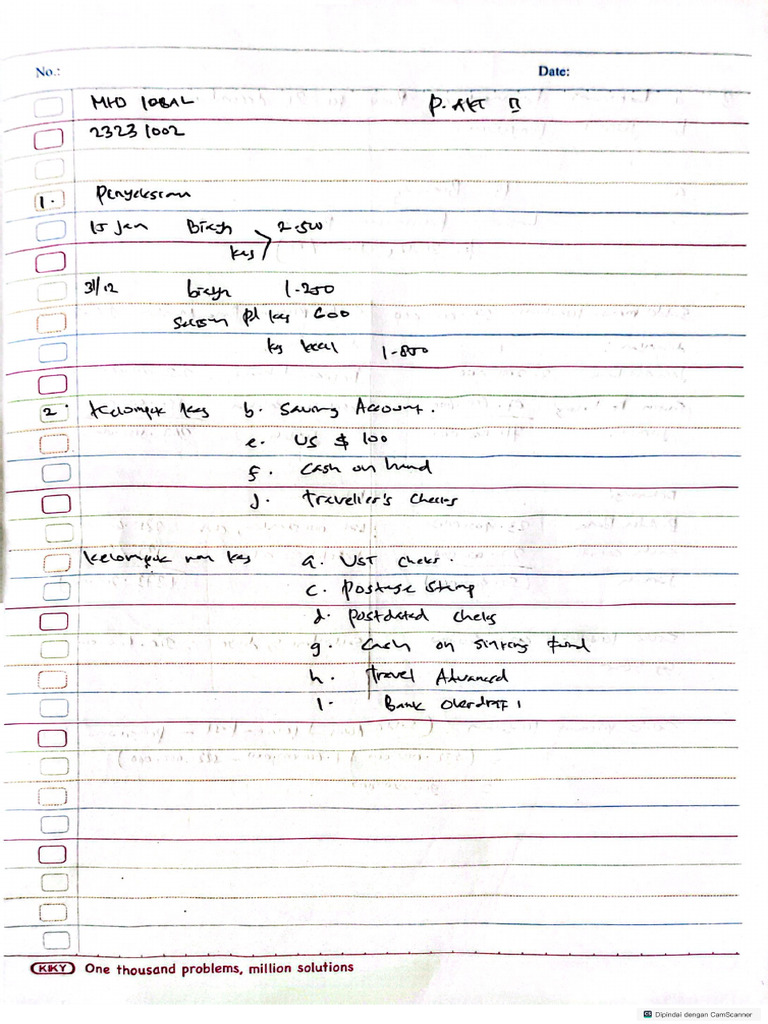 No.: Date:
MHD IQBAL P. AKT II
23231002
1. Penyelesaian
15 Jan Biaya 2.500
kas
31/12 biaya 1.250
Selisih pd kas 600
kas kecil 1.850
2. Kelompok kas b. Saving Account.
e. US $ 100
f. Cash on hand
J. Traveller's Checks
Kelompok non kas a. UST Cheks.
c. Postage Stamp
d. Postdated Cheks
g. Cash on sinking fund
h. Travel Advanced
I. Bank Overdraft
KIKY One thousand problems, million solutions
Dipindai dengan CamScanner